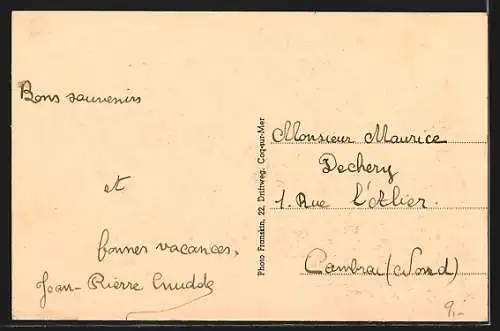 Bons souvenirs
et
bonnes vacances.
Jean-Pierre
Photo Franskin, 22, Driftweg, Coq-sur-Mer
Monsieur Maurice
Dechery
1. Rue l'Atelier.
Cambrai (Nord)
9,-